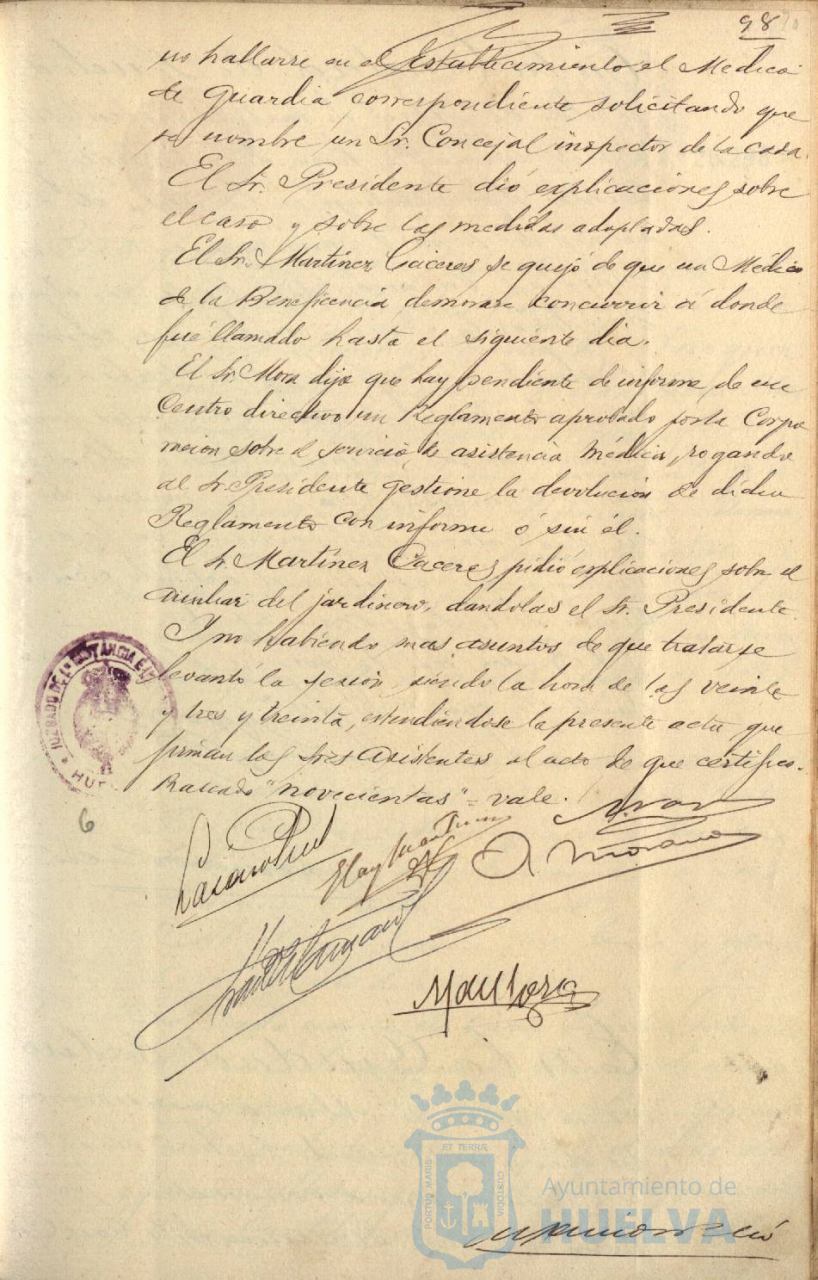 98
no hallarse en el Establecimiento el Medico
de Guardia, correspondiente solicitando que
se nombre un Sr. Concejal inspector de la casa.
El Sr. Presidente dió explicaciones sobre
el caso y sobre las medidas adoptadas.
El Sr. Martinez Caceres se quejó de que un Médico
de la Beneficencia demorase concurrir á donde
fué llamado hasta el siguiente dia.
El Sr. Mora dijo que hay pendiente de informe de un
Centro directivo un Reglamento aprobado por la Corpo
racion sobre el servicio de asistencia Médica, rogando
al Sr. Presidente gestione la devolución de dicho
Reglamento con informe ó sin él.
El Sr. Martínez Caceres pidió explicaciones sobre el
auxiliar del jardinero, dandolas el Sr. Presidente.
Y no habiendo mas asuntos de que tratar se
levantó la sesion, siendo la hora de las veinte
y tres y treinta, estendiéndose la presente acta que
firman los Sres asistentes al acto de que certifico.
Raspado "novecientas" = vale.
JUZGADO DE 1ª INSTANCIA E
HU
6
ET TERRÆ
PORTUS MARIS
CUSTODIA
Ayuntamiento de
HUELVA